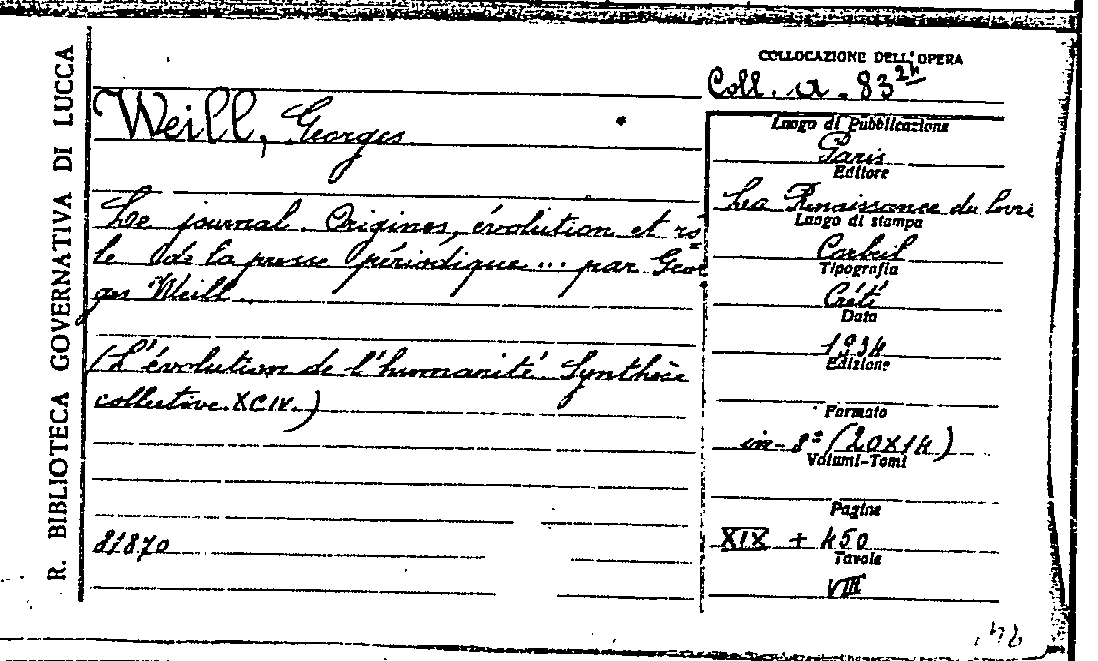 R. BIBLIOTECA GOVERNATIVA DI LUCCA
COLLOCAZIONE DELL'OPERA
Coll. a. 83 24
Weill, Georges
Le journal. Origines, évolution et rô-
le de la presse périodique... par Geor
ges Weill
(L'évolution de l'humanité. Synthèse
collective. XCIV.)
81870
Luogo di Pubblicazione
Paris
Editore
La Renaissance du livre
Luogo di stampa
Corbeil
Tipografia
Crété
Data
1934
Edizione
Formato
in-8° (20X14)
Volumi-Tomi
Pagine
XIX + 450
Tavole
VIII